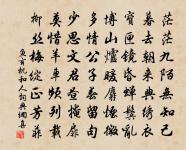 茫茫九陌無知己
暮去朝來典繡衣
寶匣鏡昏蟬鬢亂
博山爐暖麝煙微
多情公子春留句
少思文君晝掩扉
莫惜羊車頻列載
柳絲梅綻正芳菲
魚玄機和人